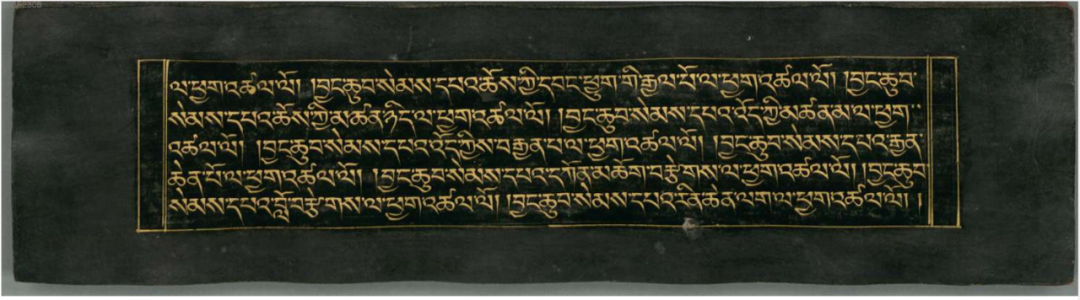 ལ་ཕྱག་འཚལ་ལོ། །བྱང་ཆུབ་སེམས་དཔའ་ཆོས་ཀྱི་དབང་ཕྱུག་གི་རྒྱལ་པོ་ལ་ཕྱག་འཚལ་ལོ། །བྱང་ཆུབ་
སེམས་དཔའ་ཆོས་ཀྱི་མཚན་ཉིད་ལ་ཕྱག་འཚལ་ལོ། །བྱང་ཆུབ་སེམས་དཔའ་འོད་ཀྱི་མཚན་མ་ལ་ཕྱག་
འཚལ་ལོ། །བྱང་ཆུབ་སེམས་དཔའ་འོད་ཀྱིས་བརྒྱན་པ་ལ་ཕྱག་འཚལ་ལོ། །བྱང་ཆུབ་སེམས་དཔའ་རྒྱན་
ཆེན་པོ་ལ་ཕྱག་འཚལ་ལོ། །བྱང་ཆུབ་སེམས་དཔའ་དཀོན་མཆོག་བརྩེགས་ལ་ཕྱག་འཚལ་ལོ། །བྱང་ཆུབ་
སེམས་དཔའ་བློ་བརྩེགས་ལ་ཕྱག་འཚལ་ལོ། །བྱང་ཆུབ་སེམས་དཔའ་རིན་ཆེན་ལག་ལ་ཕྱག་འཚལ་ལོ། །